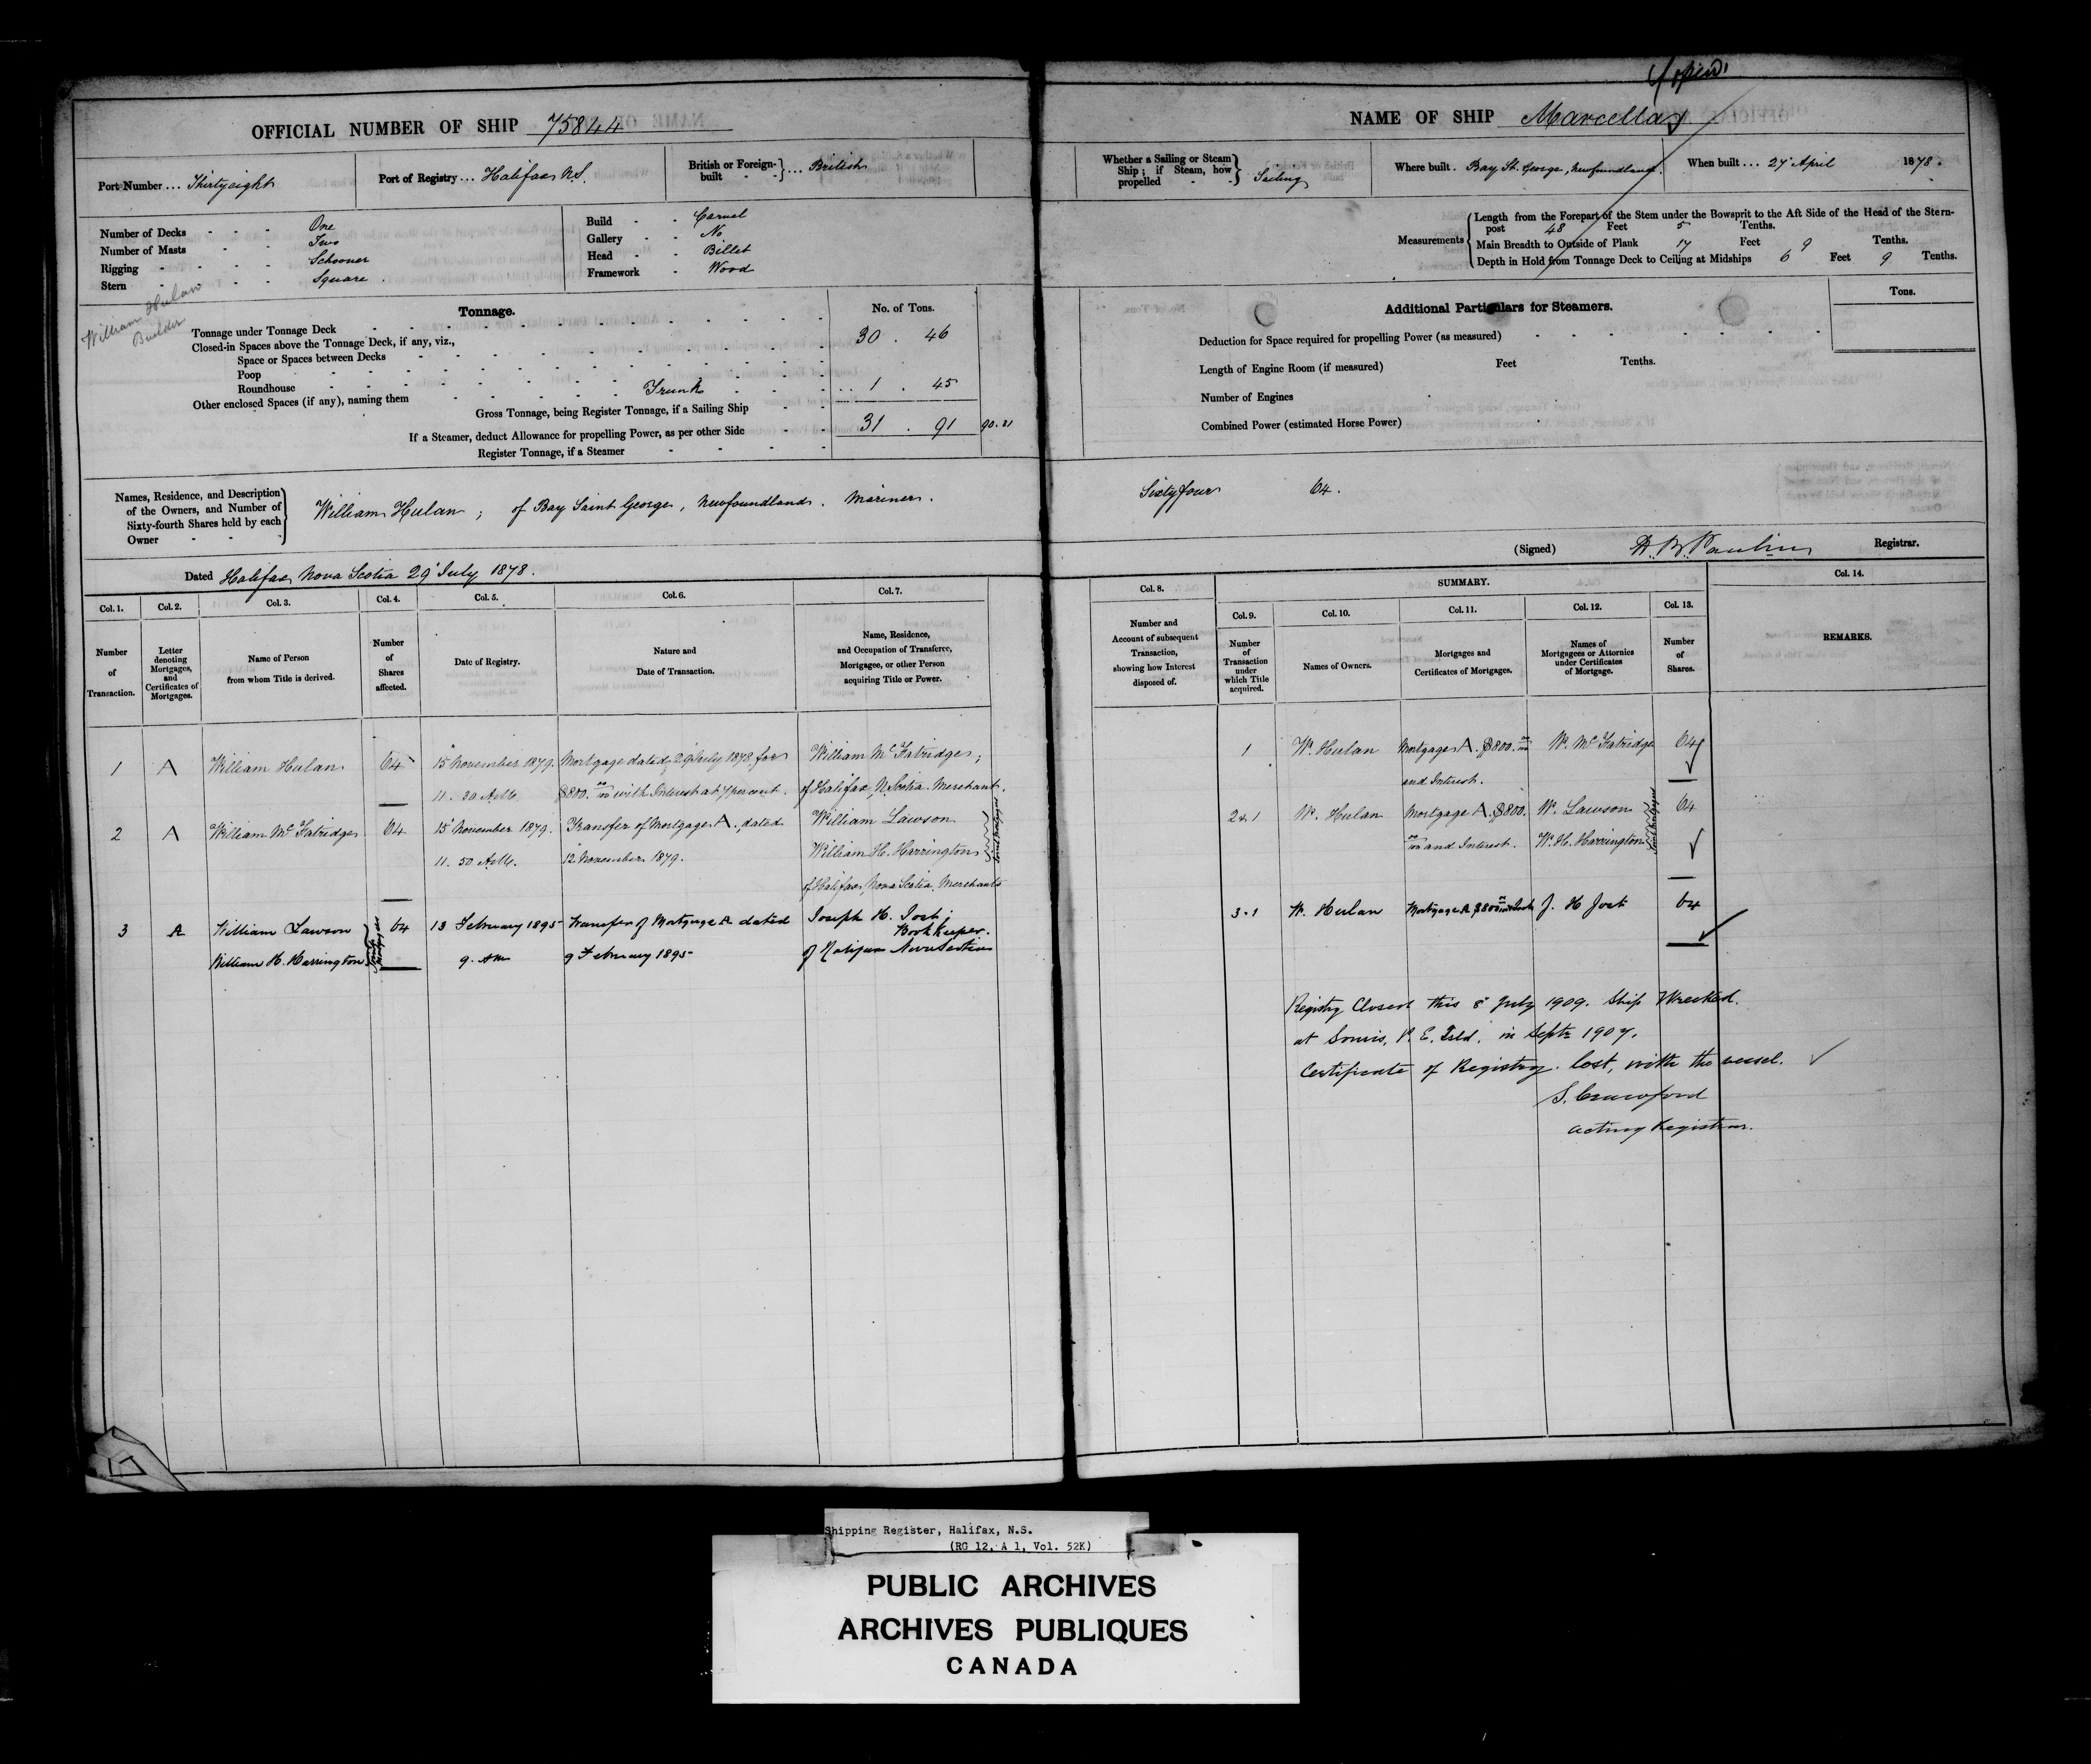 OFFICIAL NUMBER OF SHIP 75844
Port Number ... Thirtyeight
Port of Registry ... Halifax N.S.
British or Foreign-built ... British
Number of Decks One
Number of Masts Two
Rigging Schooner
Stern Square.
Build Carvel
Gallery No
Head Billet
Framework Wood
William Hulan
Builder
Tonnage.
No. of Tons.
Tonnage under Tonnage Deck 30 . 46
Closed-in Spaces above the Tonnage Deck, if any, viz.,
Space or Spaces between Decks
Poop
Roundhouse
Other enclosed Spaces (if any), naming them Trunk ... 1 . 45
Gross Tonnage, being Register Tonnage, if a Sailing Ship 31 . 91 90.31
If a Steamer, deduct Allowance for propelling Power, as per other Side
Register Tonnage, if a Steamer
Names, Residence, and Description
of the Owners, and Number of
Sixty-fourth Shares held by each
Owner
William Hulan; of Bay Saint George, Newfoundland. Mariner.
Dated Halifax Nova Scotia 29 July 1878.
Col. 1. Col. 2. Col. 3. Col. 4. Col. 5. Col. 6. Col. 7.
Number of Transaction.
Letter denoting Mortgages, and Certificates of Mortgages.
Name of Person from whom Title is derived.
Number of Shares affected.
Date of Registry.
Nature and Date of Transaction.
Name, Residence, and Occupation of Transferee, Mortgagee, or other Person acquiring Title or Power.
1 A William Hulan 64 15 November 1879. Mortgage dated 29 July 1878 for William McFatridge;
11. 30 A.M. $800. 00/100 with Interest at 7 percent. of Halifax, N. Scotia. Merchant.
2 A William McFatridge 64 15 November 1879. Transfer of Mortgage A., dated William Lawson
11. 50 A.M. 12 November 1879. William H. Harrington
of Halifax, Nova Scotia. Merchants
Joint Mortgagees
3 A William Lawson 64 13 February 1895 Transfer of Mortgage A dated Joseph H. Jost;
Book Keeper.
William H. Harrington 9. AM 9 February 1895 of Halifax Nova Scotia
Joint Mortgagees
Copied
NAME OF SHIP Marcella
Whether a Sailing or Steam Ship; if Steam, how propelled Sailing
Where built. Bay St. George, Newfoundland.
When built ... 27 April 1878.
Measurements
Length from the Forepart of the Stem under the Bowsprit to the Aft Side of the Head of the Stern-
post 48 Feet 5 Tenths.
Main Breadth to Outside of Plank 17 Feet 9 Tenths.
Depth in Hold from Tonnage Deck to Ceiling at Midships 6 Feet 9 Tenths.
Additional Particulars for Steamers.
Tons.
Deduction for Space required for propelling Power (as measured)
Length of Engine Room (if measured) Feet Tenths.
Number of Engines
Combined Power (estimated Horse Power)
Sixty four 64.
(Signed) Registrar.
SUMMARY.
Col. 8. Col. 9. Col. 10. Col. 11. Col. 12. Col. 13. Col. 14.
Number and Account of subsequent Transaction, showing how Interest disposed of.
Number of Transaction under which Title acquired.
Names of Owners.
Mortgages and Certificates of Mortgages.
Names of Mortgagees or Attornies under Certificates of Mortgage.
Number of Shares.
REMARKS.
1 W. Hulan Mortgage A. $800. 00/100 W. McFatridge 64
and Interest.
2 & 1 W. Hulan Mortgage A. $800. W. Lawson 64
00/100 and Interest. W. H. Harrington
Joint Mortgagees
3 & 1 W. Hulan Mortgage A $800 J. H Jost 64
Registry Closed this 8 July 1909. Ship Wrecked.
at Souris, P. E. Isld. in Sept 1907.
Certificate of Registry lost, with the vessel.
S. Crawford
Acting Registrar.
Shipping Register, Halifax, N.S.
(RG 12, A 1, Vol. 52K)
PUBLIC ARCHIVES
ARCHIVES PUBLIQUES
CANADA